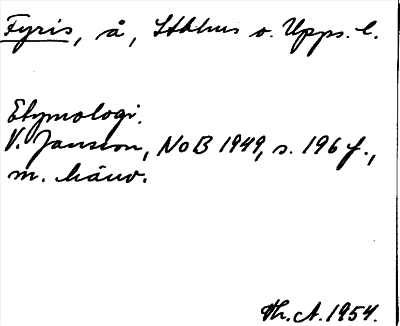 Fyris, å, Sthlms o. Upps. l.
Etymologi.
V. Jansson, NoB 1949, s. 196 f.,
m. hänv.
Th. A. 1954.